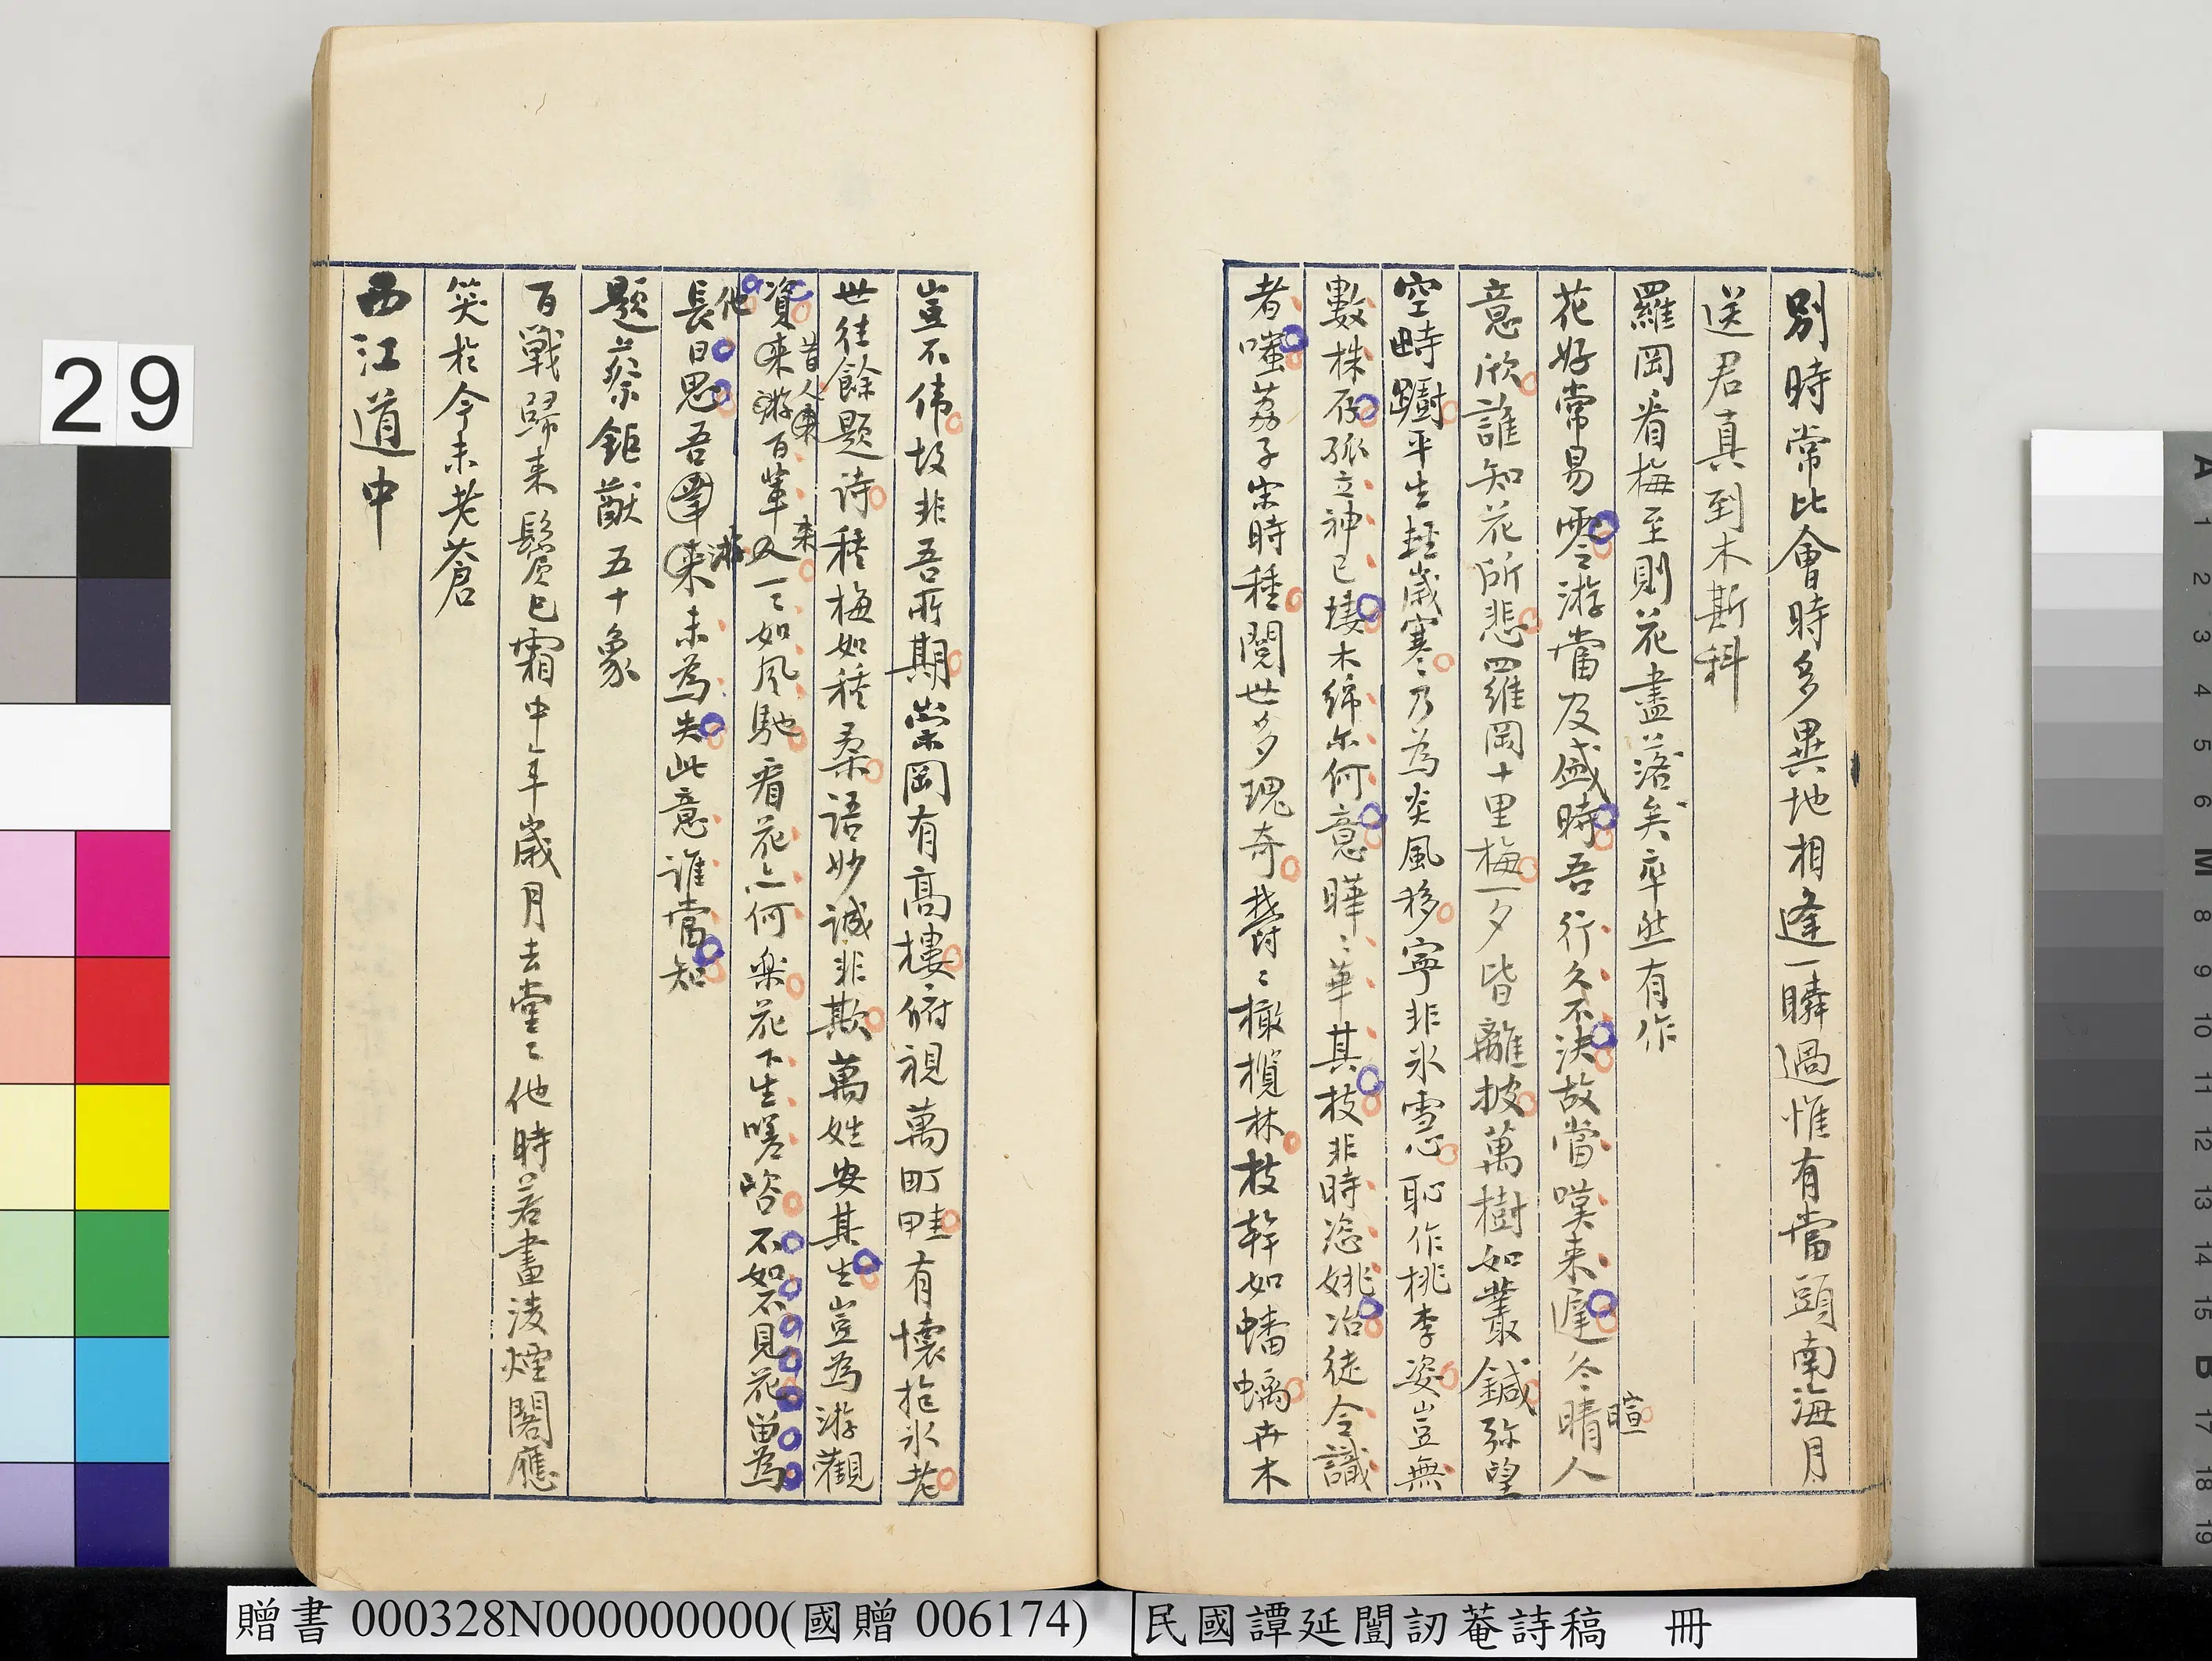 別時常比會時多異地相逢一瞬過惟有當頭南海月
送君真到木斯科
羅岡看梅至則花盡落矣率然有作
花好常易零游當及盛時吾行久不決故當嘆来遲冬晴人
暄
意欣誰知花所悲羅岡十里梅一夕皆離披萬樹如叢鍼弥望
空畸躕平生輕歲寒乃為炎風移寧非氷雪心恥作桃李姿豈無
數株存孤立神已悽木綿尔何意曄〻華其枝非時恣姚冶徒令識
者嗤荔子宋時種閱世多瑰奇鬱〻橄欖林枝幹如蟠螭卉木
豈不偉故非吾所期崇岡有高樓俯視萬町畦有懷抱氷老
世往餘題詩種梅如種桑語妙誠非欺萬姓安其生豈為游觀
資来游百輩人一〻如風馳看花亦何樂花下生嗟咨不如不見花留為
昔人来
来
長日思吾輩来未為失此意誰當知
他
游
題蔡鉅猷五十象
百戰歸来鬢已霜中年歲月去堂〻他時若畫淩煙閣應
笑於今未老蒼
西江道中
29
贈書 000328N000000000(國贈 006174)
民國譚延闓訒菴詩稿 冊
A 1 2 3 4 5 6 M 8 9 10 11 12 13 14 15 B 17 18 19